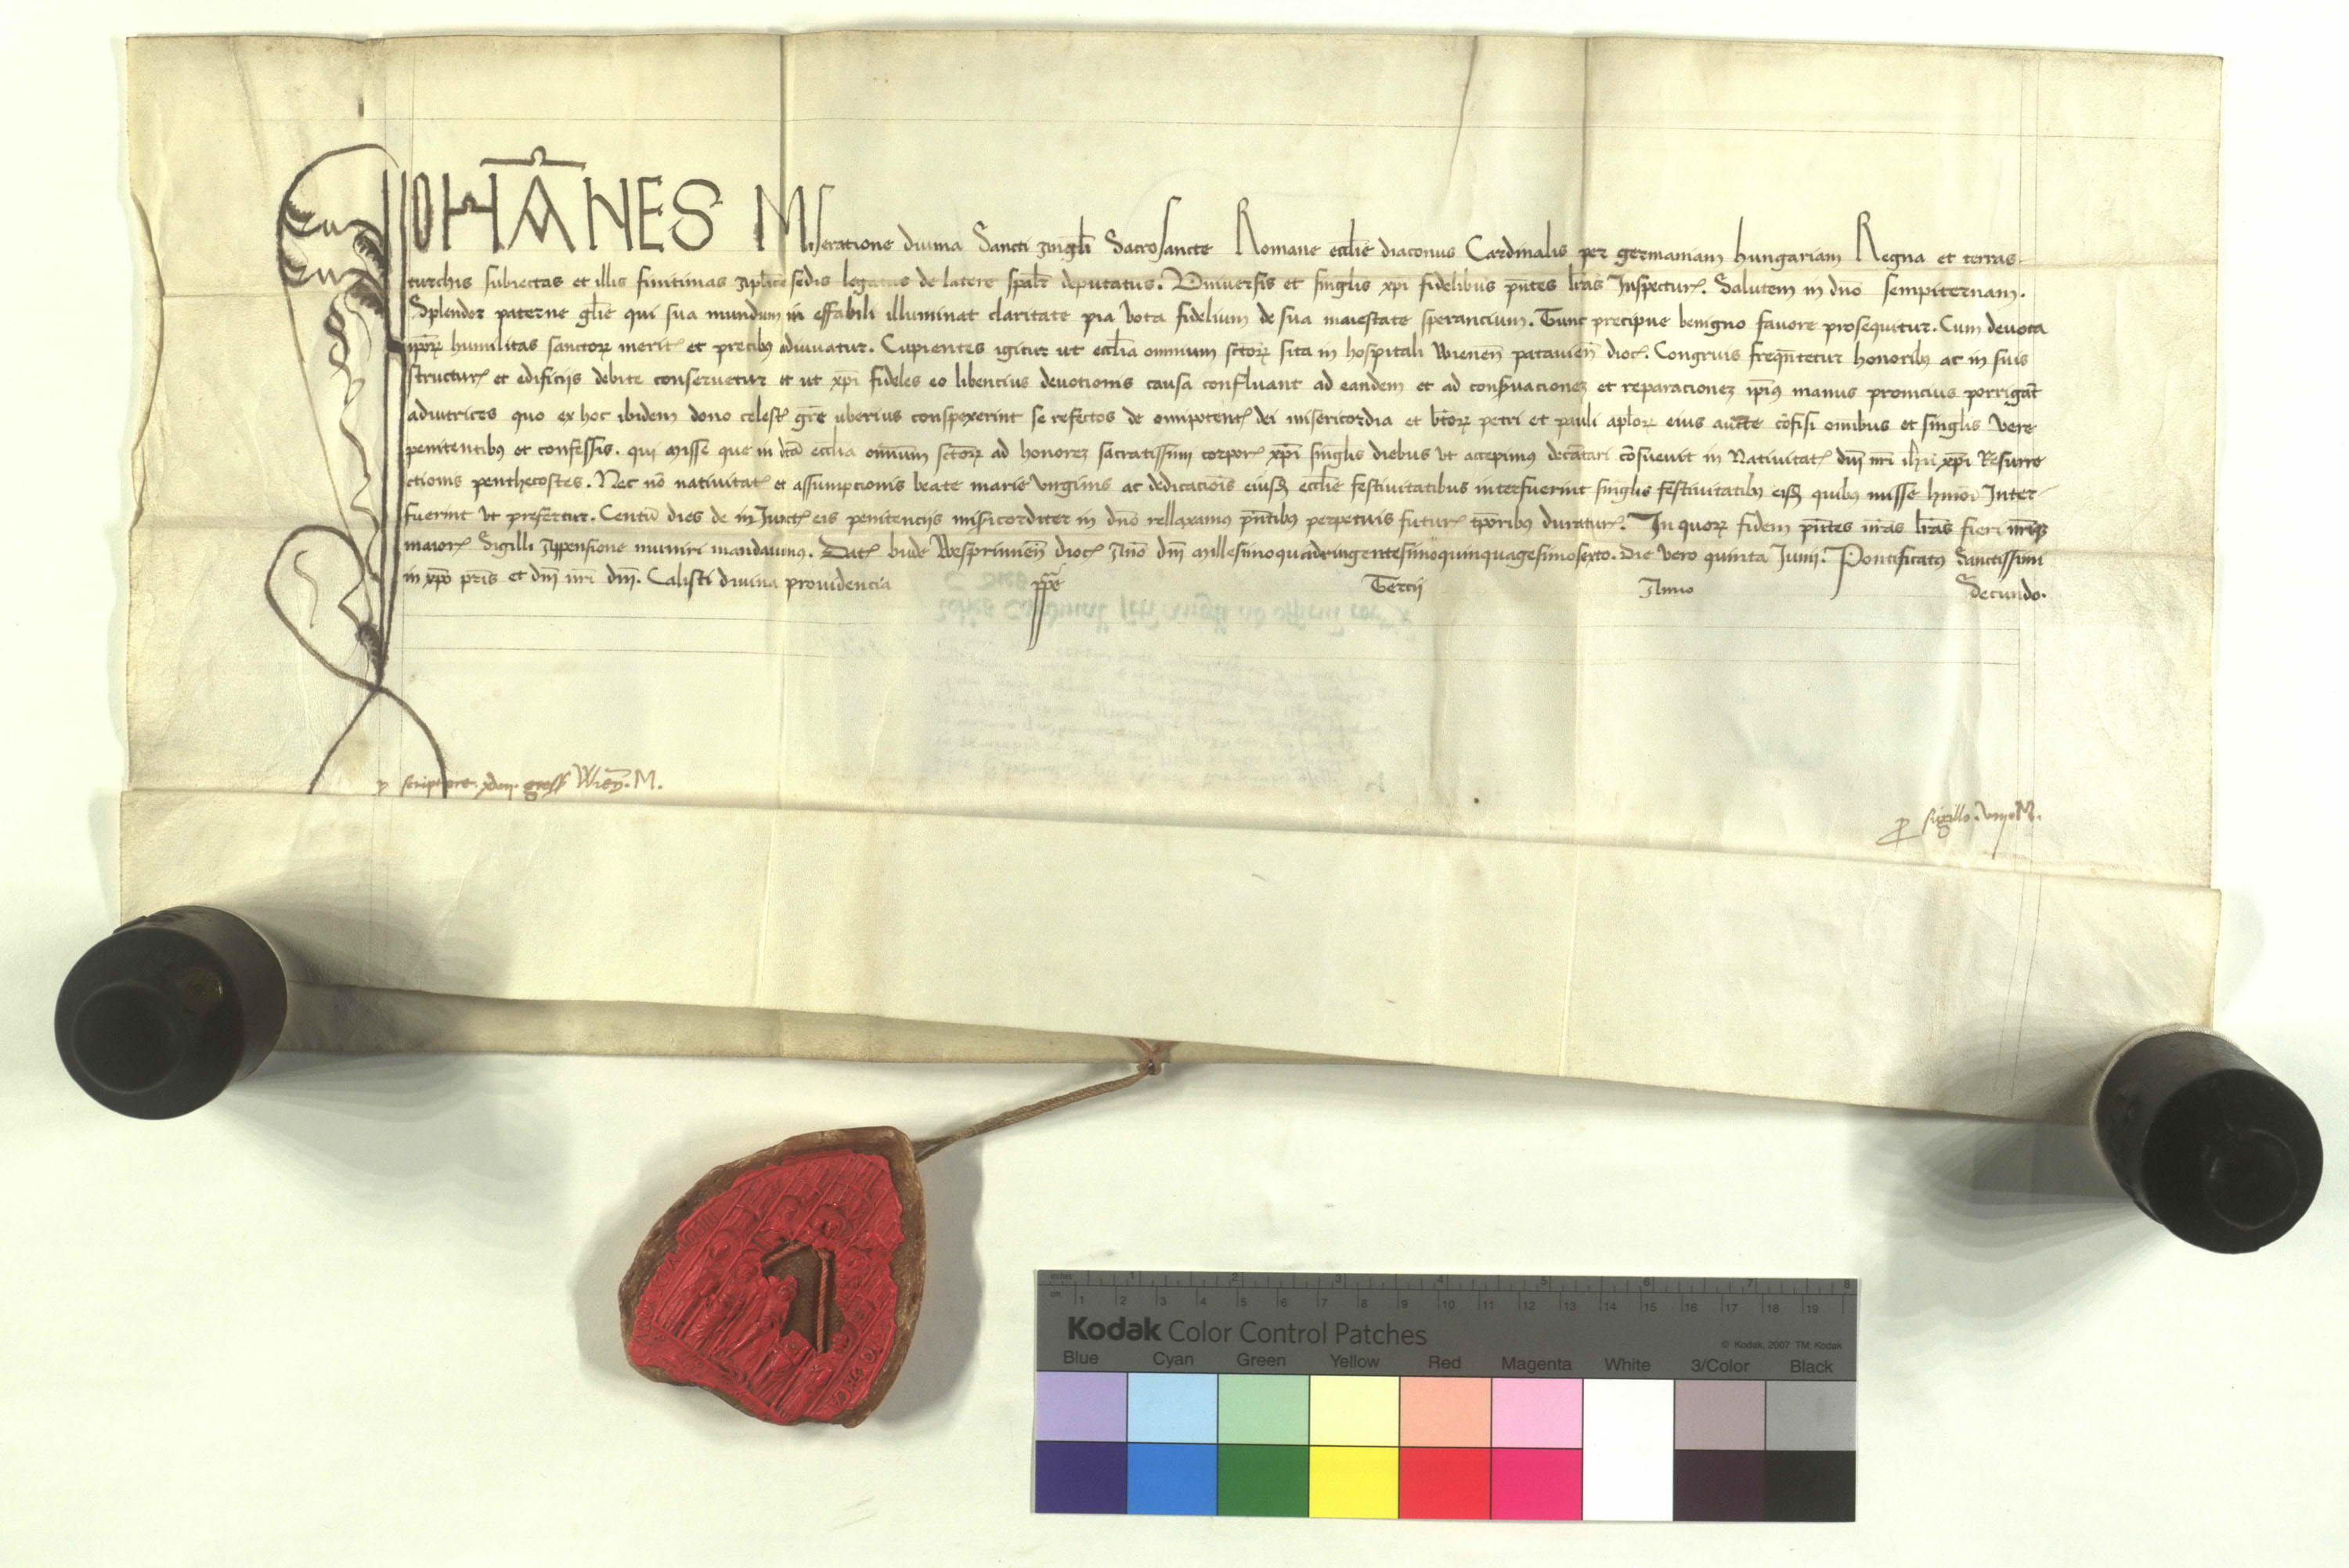 IOHANES Miseratione diuina Sancti Angeli Sacrosancte Romane eccl̄ie diaconus Cardinalis per germaniam hungariam Regna et terras
turchis subiectas et illis finitimas Ap̄lice sedis legatus de latere sp̄alr̄ deputatus. Vniuersis et singl̄is xp̄i fidelibus pn̄tes lr̄as Inspectur̄. Salutem in dn̄o sempiternam.
Splendor paterne gl̄ie qui sua mundum in effabili illuminat claritate pia vota fidelium de sua maiestate sperancium. Tunc precipue benigno fauore prosequitur. Cum deuota
ip̄oꝝ humilitas sanctoꝝ merit̄ et precibꝰ adiuuatur. Cupientes igitur ut eccl̄ia omnium sc̄toꝝ sita in hospitali Wienen̄ patauien̄ dioc̄. Congruis freqn̄tetur honoribꝰ ac in suis
structur̄ et edificijs debite conseruetur et ut xp̄i fideles eo libencius deuotionis causa confluant ad eandem et ad conseruacionez et reparacionez ip̄iꝰ manus promcius porrigāt
adiutrices quo ex hoc ibidem dono celest̄ gr̄e uberius conspexerint se refectos de omipotent̄ dei misericordia et bt̄oꝝ petri et pauli apl̄oꝝ eius auct̄te cōfisi omībus et singl̄is vere
penitentibꝰ et confessis. qui Misse que in dc̄ta eccl̄ia omnium sc̄toꝝ ad honorez sacratissimi corpor̄ xp̄i singl̄is diebus ut accepimus decātari cōsueuit in Natiuitat̄ dn̄i nr̄i ih̄u xp̄i Resurre
ctionis penthecostes. Nec nō natiuitat̄ et assumpcionis beate marie virginis ac dedicacion̄is eiusꝫ eccl̄ie festiuitatibus interfuerint singl̄is festiuitatibꝰ eisꝫ quibus misse hmōi Inter-
fuerint ut prefertur. Centū dies de in Iunct̄ eis penitencijs mis̄icorditer in dn̄o rellaxamus pn̄tibꝰ perpetuis futur̄ tp̄oribus duratur̄. In quoꝝ fidem pn̄tes nr̄as lr̄as fieri nr̄iqꝫ
maior̄ Sigilli Appensione muniri mandauimus. Dat̄ bude Wesprimien̄ dioc̄ Anō dn̄i Millesimoquadringentesimoquinquagesimosexto. Die vero quinta Iunij. Pontificatꝰ Sanctissimi
in xp̄o pr̄is et dn̄i nr̄i dn̄i. Calisti diuina prouidencia pp̄e Tercij Anno Secundo.
scriptore gross Wien̄. M.
ꝓ sigillo. M.
Kodak Color Control Patches
© Kodak, 2007 TM: Kodak
inches 1 2 3 4 5 6 7 8
cm 1 2 3 4 5 6 7 8 9 10 11 12 13 14 15 16 17 18 19
Blue Cyan Green Yellow Red Magenta White 3/Color Black